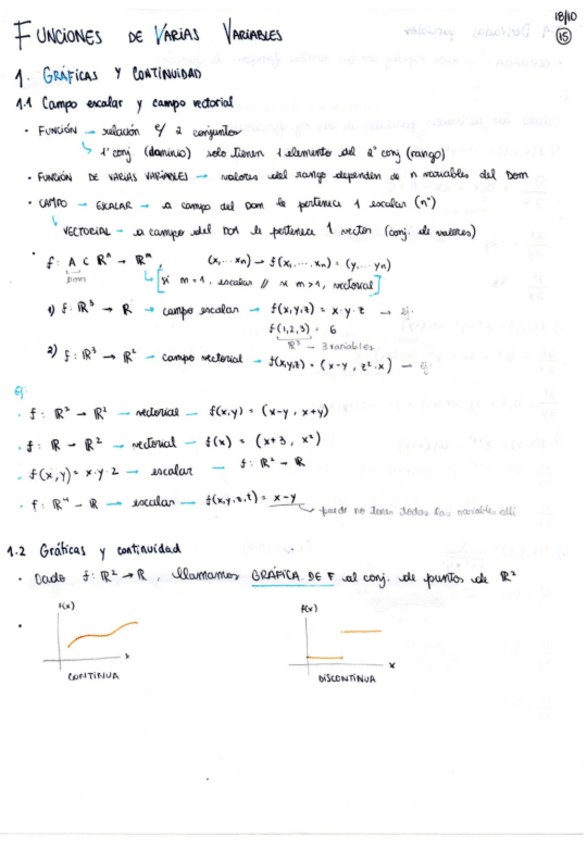 18/10
15
FUNCIONES DE VARIAS VARIABLES
1. GRÁFICAS Y CONTINUIDAD
1.1 Campo escalar y campo vectorial
· FUNCIÓN → relación e/ 2 conjuntos
↳ 1º conj. (dominio) solo tienen 1 elemento del 2º conj (rango)
· FUNCIÓN DE VARIAS VARIABLES → valores del rango dependen de n variables del Dom
· CAMPO → ESCALAR → a campo del Dom le pertenece 1 escalar (nº)
↳ VECTORIAL → a campo del DOM le pertenece 1 vector (conj. de valores)
· f: A ⊂ ℝⁿ → ℝᵐ, (x,...xn) → f(x,...,xn) = (y,...yn)
Dom
↳ [si m=1, escalar // si m>1, vectorial]
1) f: ℝ³ → ℝ → campo escalar → f(x,y,z) = x·y·z → ej.
f(1,2,3) = 6
ℝ³ → 3 variables
2) f: ℝ³ → ℝ² → campo vectorial → f(x,y,z) = (x-y, z²·x) → ej.
ej:
· f: ℝ² → ℝ² → vectorial → f(x,y) = (x-y, x+y)
· f: ℝ → ℝ² → vectorial → f(x) = (x+3, x²)
· f(x,y) = x·y·2 → escalar → f: ℝ² → ℝ
· f: ℝ⁴ → ℝ → escalar → f(x,y,z,t) = x-y
↳ puede no tener todas las variables allí
1.2 Gráficas y continuidad
· Dado f: ℝ² → ℝ, llamamos GRÁFICA DE F al conj. de puntos de ℝ²
f(x) f(x)
x x
CONTINUA DISCONTINUA